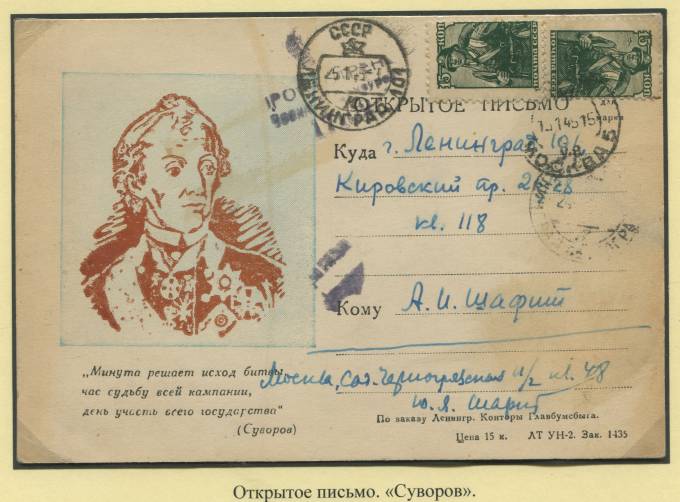 СССР
ЛЕНИНГРАД
15 КОП
15 КОП
ОТКРЫТОЕ ПИСЬМО
для
марки
МОСКВА 5
Куда г. Ленинград 101
Кировский пр. 26/28
кв. 118
Кому А. И. Шафит
„Минута решает исход битвы,
час судьбу всей кампании,
день участь всего государства“
(Суворов)
Москва, Сад. Черногрязская кв. 48
Ю. Я.
По заказу Ленингр. Конторы Главбумсбыта.
Цена 15 к. ЛТ УН-2. Зак. 1435
Открытое письмо. «Суворов».